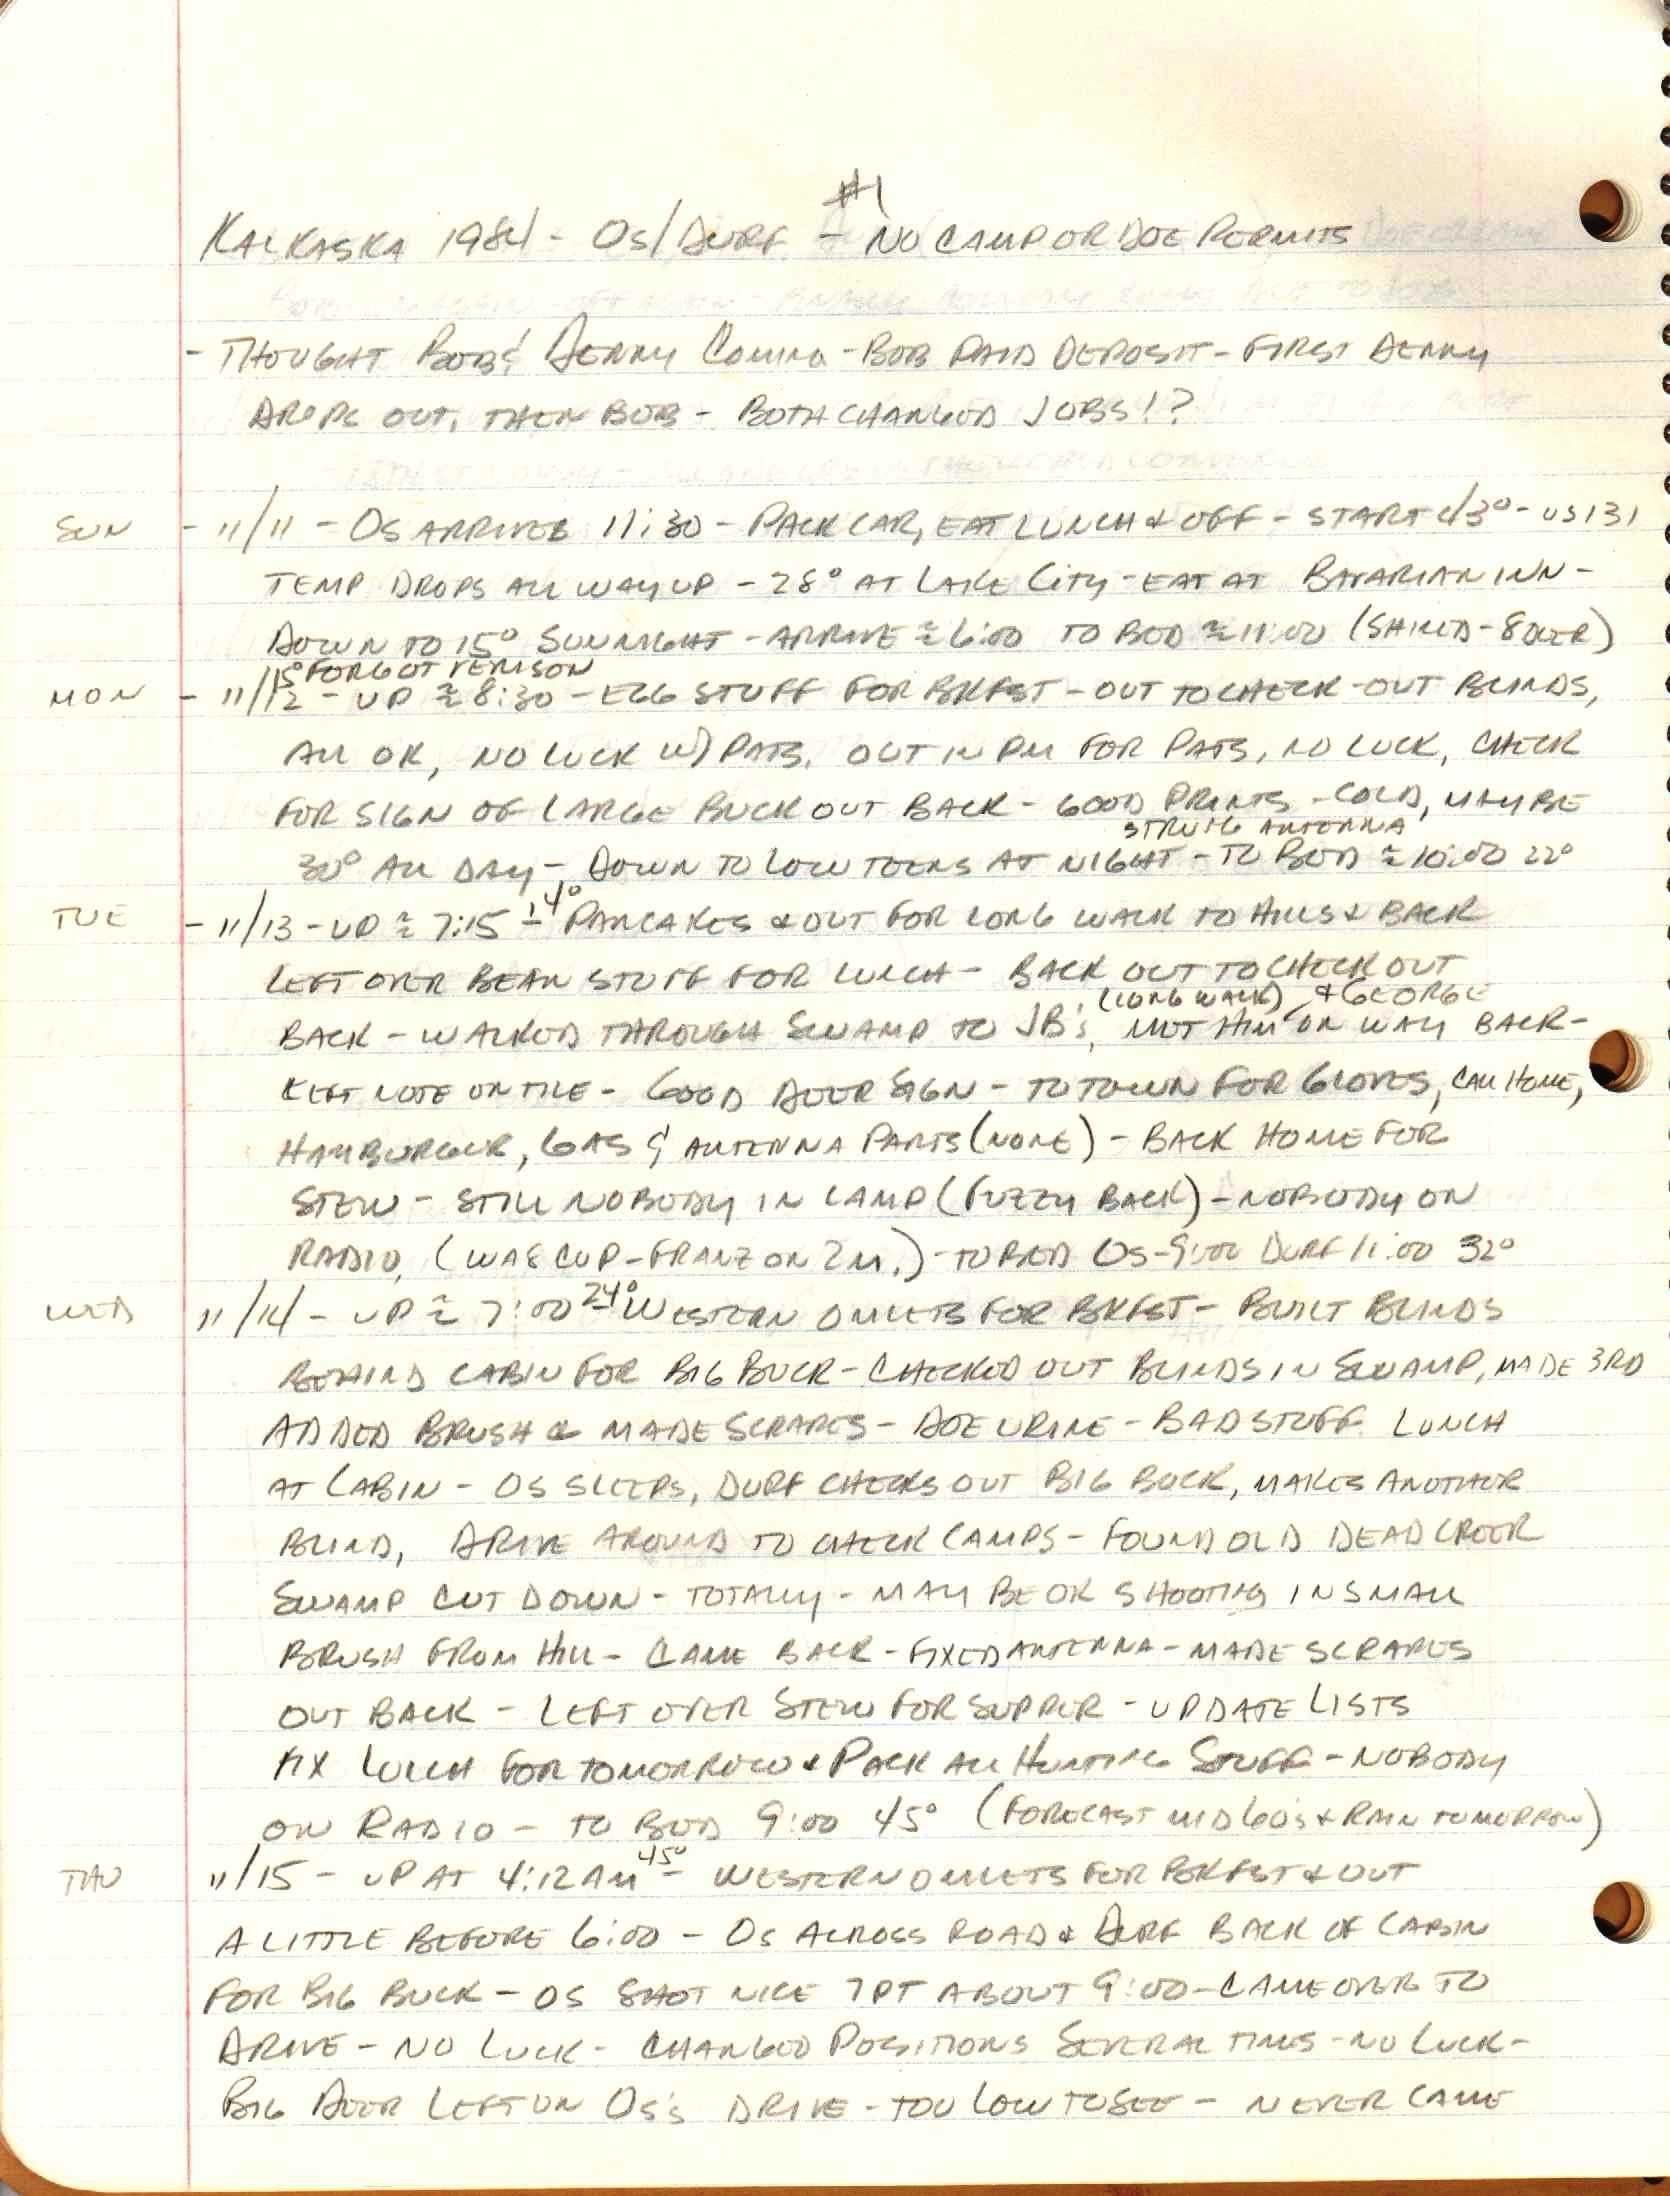 #1
KALKASKA 1984 - OS/DURF - NO CAMP OR DOE PERMITS
- THOUGHT BOB & DENNY COMING - BOB PAID DEPOSIT - FIRST DENNY
DROPS OUT, THEN BOB - BOTH CHANGED JOBS!?
SUN - 11/11 - OS ARRIVES 11:30 - PACK CAR, EAT LUNCH & OFF - START 43° - US131
TEMP DROPS ALL WAY UP - 28° AT LAKE CITY - EAT AT BAVARIAN INN -
DOWN TO 15° SUN NIGHT - ARRIVE ≈ 6:00 TO BED ≈ 11:00 (SHINED - 8 DEER)
15° FORGOT VENISON
MON - 11/12 - UP ≈ 8:30 - EGG STUFF FOR BKFST - OUT TO CHECK-OUT BLINDS,
ALL OK, NO LUCK W/ PATS. OUT IN PM FOR PATS, NO LUCK, CHECK
FOR SIGN OF LARGE BUCK OUT BACK - GOOD PRINTS - COLD, MAYBE
STRUNG ANTENNA
30° ALL DAY - DOWN TO LOW TEENS AT NIGHT - TO BED ≈ 10:00 22°
TUE - 11/13 - UP ≈ 7:15 - 14° PANCAKES & OUT FOR LONG WALK TO HILLS & BACK
LEFT OVER BEAN STUFF FOR LUNCH - BACK OUT TO CHECK OUT
(LONG WALK) & GEORGE
BACK - WALKED THROUGH SWAMP TO JB'S, MET HIM ON WAY BACK -
LEFT NOTE ON TREE - GOOD DEER SIGN - TO TOWN FOR GLOVES, CALL HOME,
HAMBURGER, GAS & ANTENNA PARTS (NONE) - BACK HOME FOR
STEW - STILL NOBODY IN CAMP (FUZZY BACK) - NOBODY ON
RADIO, (WA8CUP - FRANZ ON 2M.) - TO BED OS - 9:00 DURF 11:00 32°
WED 11/14 - UP ≈ 7:00 24° - WESTERN OMLETS FOR BKFST - BUILT BLINDS
BEHIND CABIN FOR BIG BUCK - CHECKED OUT BLINDS IN SWAMP, MADE 3RD
ADDED BRUSH & MADE SCRAPES - DOE URINE - BAD STUFF. LUNCH
AT CABIN - OS SLEEPS, DURF CHECKS OUT BIG BUCK, MAKES ANOTHER
BLIND, DRIVE AROUND TO CHECK CAMPS - FOUND OLD DEAD CREEK
SWAMP CUT DOWN - TOTALLY - MAY BE OK SHOOTING IN SMALL
BRUSH FROM HILL - CAME BACK - FIXED ANTENNA - MADE SCRAPES
OUT BACK - LEFT OVER STEW FOR SUPPER - UPDATE LISTS
FIX LUNCH FOR TOMORROW & PACK ALL HUNTING STUFF - NOBODY
ON RADIO - TO BED 9:00 45° (FORECAST MID 60'S & RAIN TOMORROW)
THU 11/15 - UP AT 4:12 AM 45° - WESTERN OMLETS FOR BKFST & OUT
A LITTLE BEFORE 6:00 - OS ACROSS ROAD & DURF BACK OF CABIN
FOR BIG BUCK - OS SHOT NICE 7PT ABOUT 9:00 - CAME OVER TO
DRIVE - NO LUCK - CHANGED POSITIONS SEVERAL TIMES - NO LUCK -
BIG DEER LEFT ON OS'S DRIVE - TOO LOW TO SEE - NEVER CAME